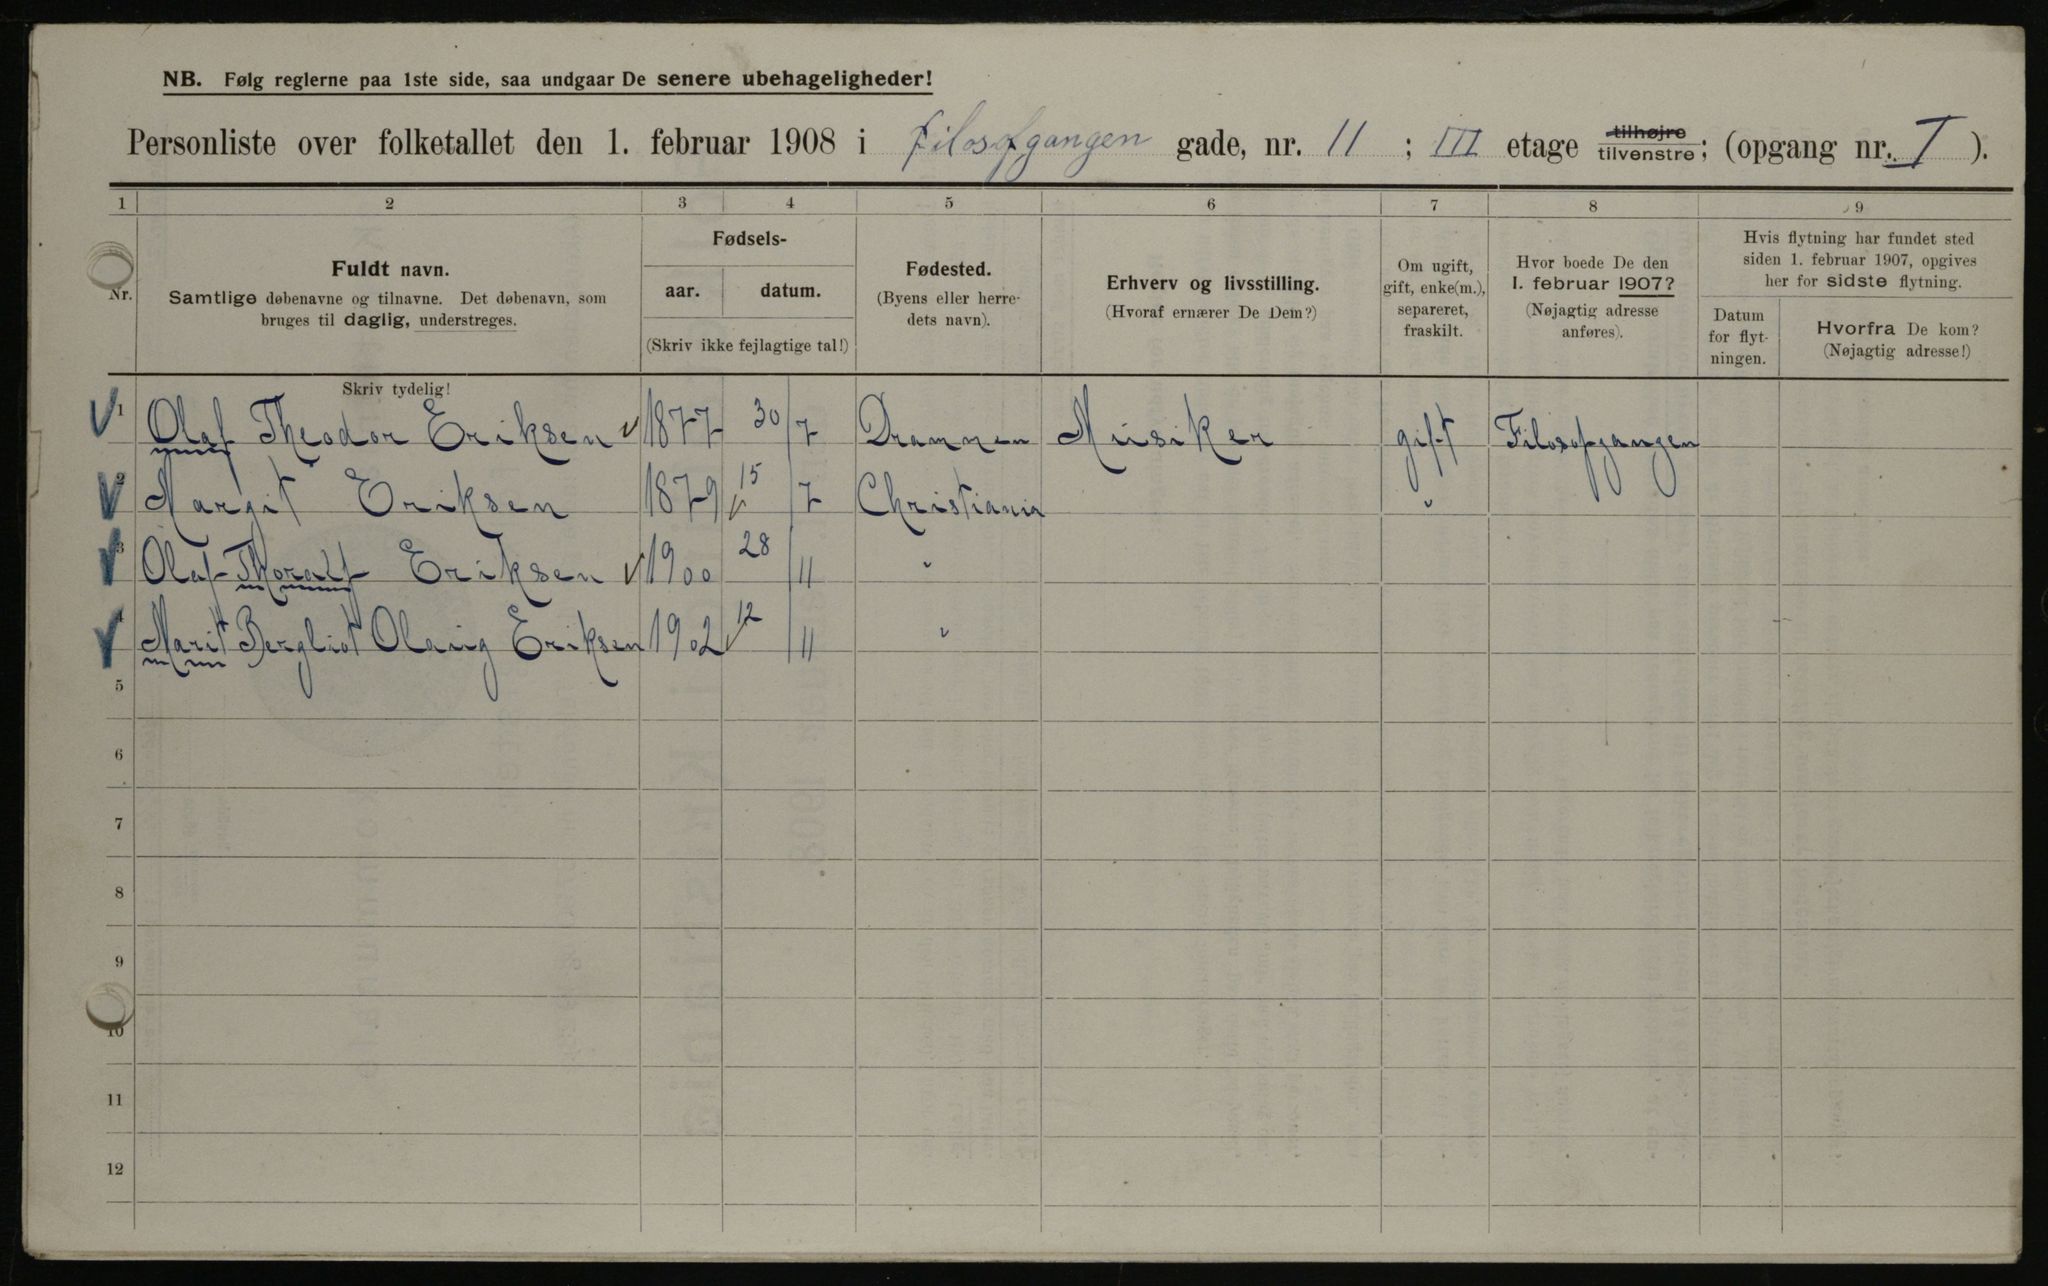 NB. Følg reglerne paa 1ste side, saa undgaar De senere ubehageligheder!
Personliste over folketallet den 1. februar 1908 i Filosofgangen gade, nr. 11 ; III etage tilhøjre tilvenstre; (opgang nr. I ).
1 2 3 4 5 6 7 8 9
Nr.
Fuldt navn.
Samtlige døbenavne og tilnavne. Det døbenavn, som
bruges til daglig, understreges.
Skriv tydelig!
Fødsels-
aar. datum.
(Skriv ikke fejlagtige tal!)
Fødested.
(Byens eller herre-
dets navn).
Erhverv og livsstilling.
(Hvoraf ernærer De Dem?)
Om ugift,
gift, enke(m.),
separeret,
fraskilt.
Hvor boede De den
1. februar 1907?
(Nøjagtig adresse
anføres).
Hvis flytning har fundet sted
siden 1. februar 1907, opgives
her for sidste flytning.
Datum
for flyt-
ningen.
Hvorfra De kom?
(Nøjagtig adresse!)
1 Olaf Theodor Eriksen 1877 30/7 Drammen Musiker gift Filosofgangen
2 Margit Eriksen 1879 15/7 Christiania "
3 Olaf Thoralf Eriksen 1900 28/11 "
4 Marit Bergliot Olaug Eriksen 1902 12/11 "
5
6
7
8
9
10
11
12